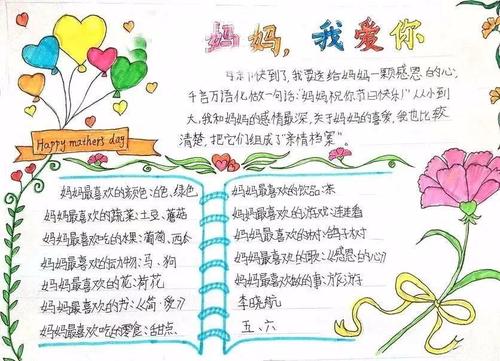 妈妈,我爱你
快到了,我要送给妈妈一颗感恩的心,
千言万语化做一句话:"妈妈祝你节日快乐!"从小到
大,我和妈妈的感情最深,关于妈妈的喜爱,我也比较
清楚,把它们组成了"亲情档案"。
Happy mathers day
妈妈最喜欢的颜色:白色、绿色
妈妈最喜欢的蔬菜:土豆、蘑菇
妈妈最喜欢吃的水果:葡萄、西瓜
妈妈最喜欢的动物:马·狗
妈妈最喜欢的花:荷花
妈妈最喜欢的书:《简·爱》
妈妈最喜欢吃的零食:甜点
妈妈最喜欢的饮品:茶
妈妈最喜欢的游戏:连连看
妈妈最喜欢的树:鸽子树
妈妈最喜欢的歌:《感恩的心》
妈妈最喜欢做的事:旅游
李晓航
五、六